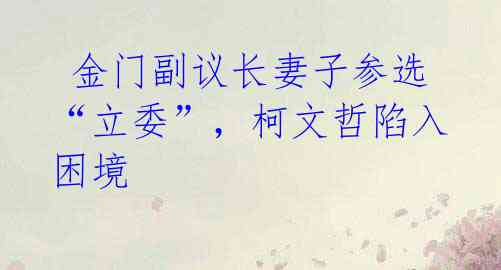 金门副议长妻子参选
“立委”，柯文哲陷入
困境